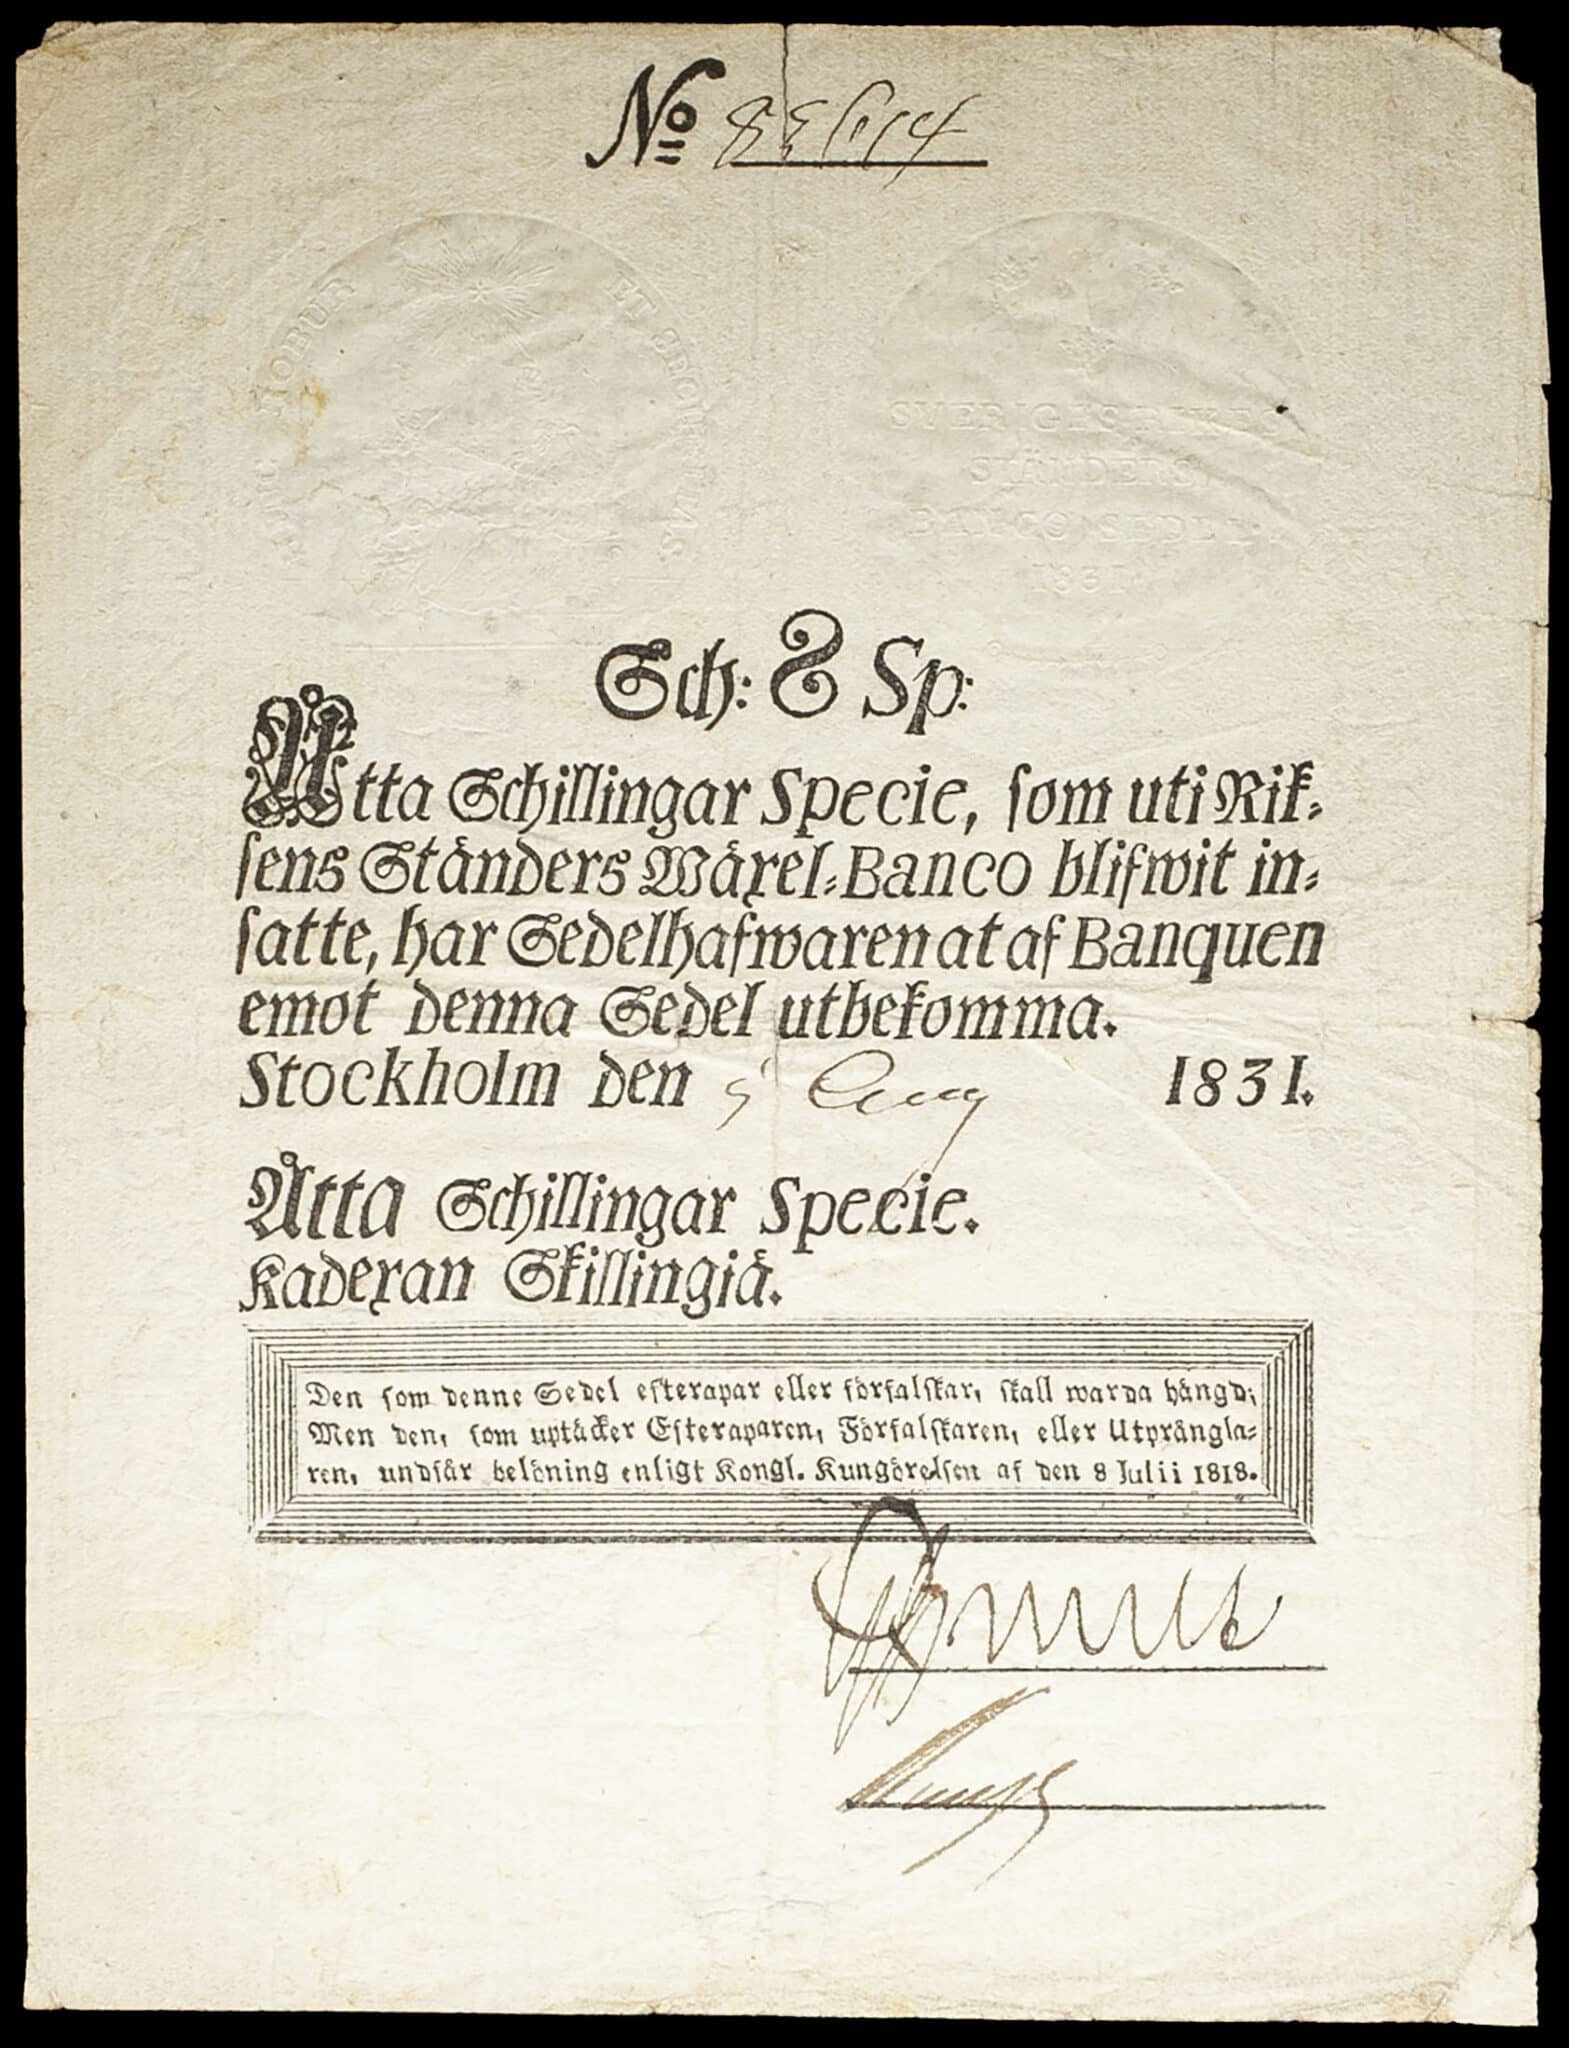 No
ROBUR ET SECURITAS
SVERIGES RIKES
STÄNDERS
BANCO SEDEL
1831
Sch: 8 Sp:
Åtta Schillingar Specie, som uti Rik-
sens Ständers Wäxel-Banco blifwit in-
satte, har Sedelhafwaren at af Banquen
emot denna Sedel utbekomma.
Stockholm den 5 Aug 1831.
Åtta Schillingar Specie.
Kadexan Skillingiä.
Den som denne Sedel efterapar eller förfalskar, skall warda hängd;
Men den, som uptäcker Efteraparen, Förfalskaren, eller Utprångla-
ren, undfår belöning enligt Kongl. Kungörelsen af den 8 Julii 1818.